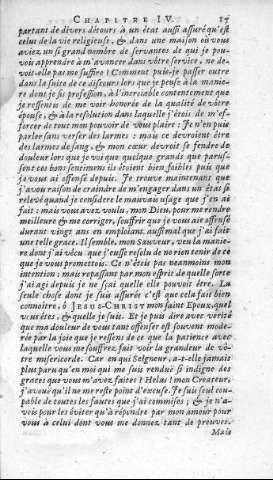 CHAPITRE IV. 17
partant de divers détours à un état aussi assuré qu'est
celui de la vie religieuse, & dans une maison où vous
aviez un si grand nombre de servantes de qui je pou-
vois apprendre à m'avancer dans vôtre service, ne de-
voit-elle pas me suffire ? Comment puis-je passer outre
dans la suite de ce discours lors que je pense à la manie-
re dont je fis profession, à l'incroiable contentement que
je ressentis de me voir honorée de la qualité de vôtre
épouse, & à la resolution dans laquelle j'étois de m'ef-
forcer de tout mon pouvoir de vous plaire : Je n'en puis
parler sans verser des larmes : mais ce devroient être
des larmes de sang, & mon cœur devroit se fendre de
douleur lors que je voi que quelque grands que parus-
sent ces bons sentimens ils étoient bien foibles puis que
je vous ai offensé depuis. Je trouve maintenant que
j'avois raison de craindre de m'engager dans un état si
relevé quand je considere le mauvais usage que j'en ai
fait : mais vous avez voulu, mon Dieu, pour me rendre
meilleure & me corriger, souffrir que je vous aie offensé
durant vingt ans en emploiant aussi mal que j'ai fait
une telle grace. Il semble, mon Sauveur, veu la manie-
re dont j'ai vécu que j'eusse resolu de ne rien tenir de ce
que je vous promettois. Ce n'étois pas neanmoins mon
intention : mais repassant par mon esprit de quelle sorte
j'ai agi depuis je ne sçai quelle elle pouvoit être. La
seule chose dont je suis assurée c'est que cela fait bien
connoître, ô JESUS-CHRIST mon saint Epoux, quel
vous êtes, & quelle je suis. Et je puis dire avec verité
que ma douleur de vous tant offenser est souvent mode-
rée par la joie que je ressens de ce que la patience avec
laquelle vous me souffrez, fait voir la grandeur de vô-
tre misericorde. Car en qui Seigneur, a-t-elle jamais
plus paru qu'en moi qui me suis renduë si indigne des
graces que vous m'avez faites ! Helas ! mon Createur,
j'avouë qu'il ne me reste point d'excuse. Je suis seul cou-
pable de toutes les fautes que j'ai commises ; & je n'a-
vois pour les éviter qu'à répondre par mon amour pour
vous à celui dont vous me donnez tant de preuves.
Mais